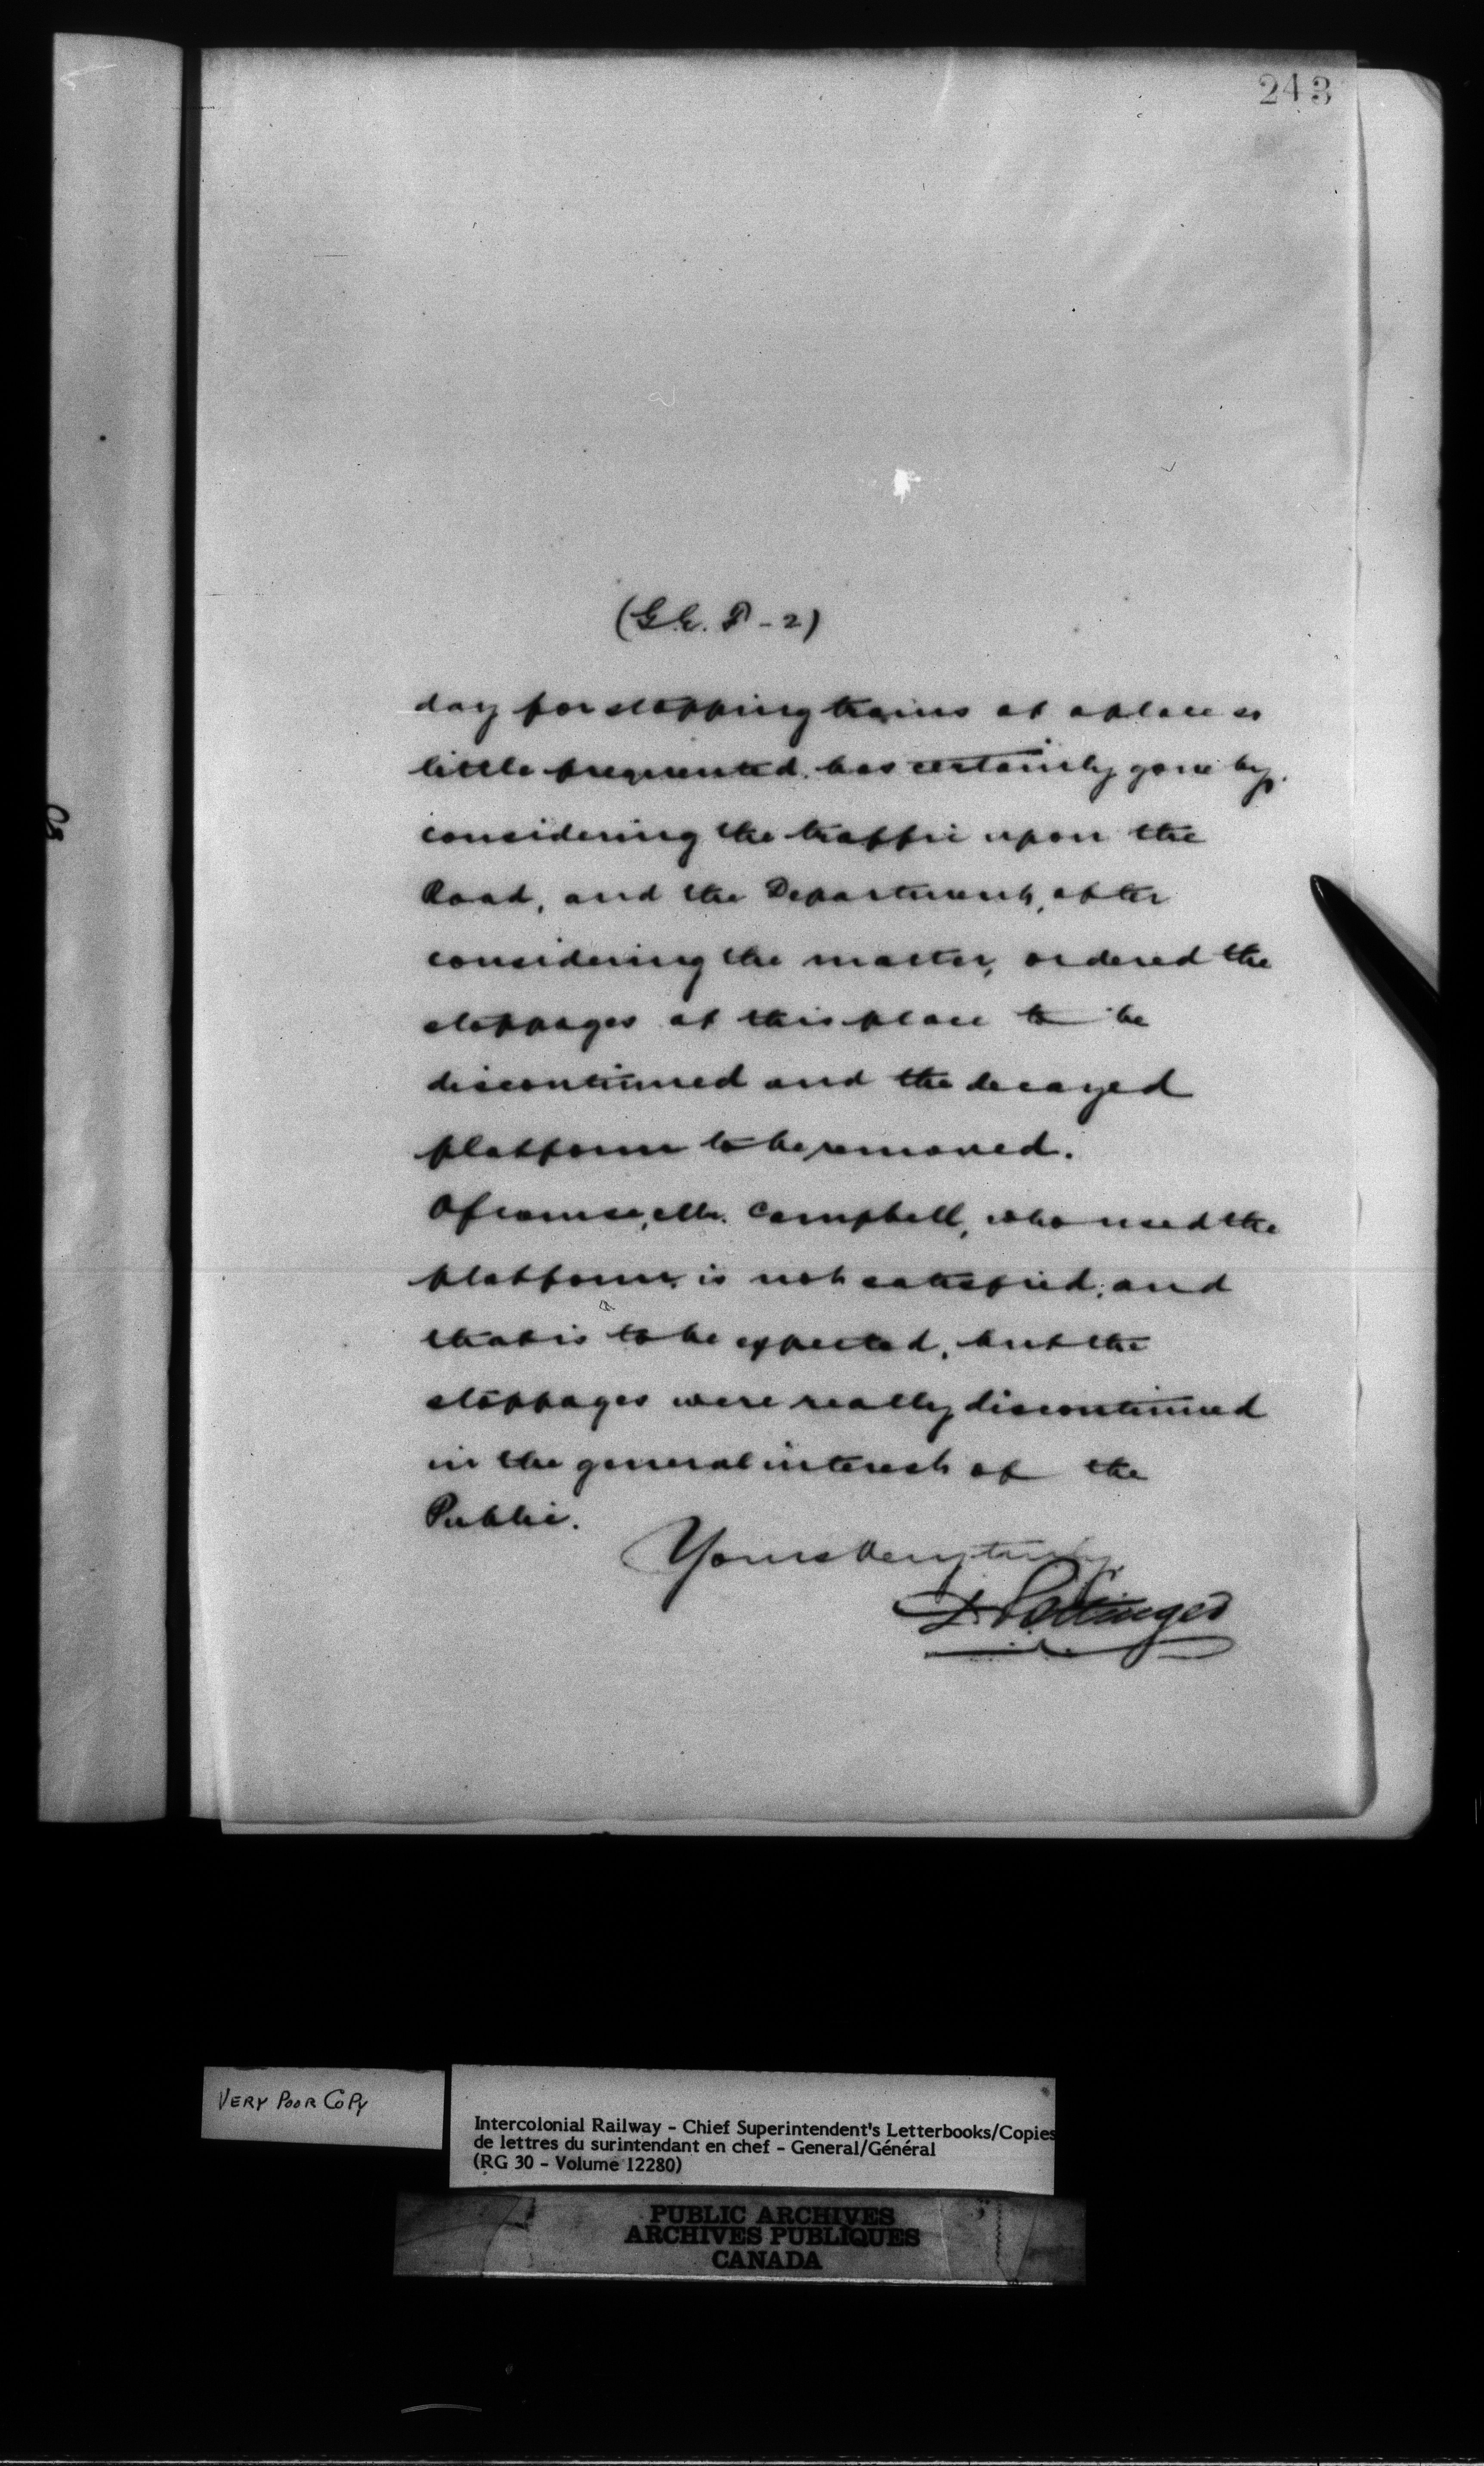 243
(G.E. P - 2)
day for stopping trains at a place so
little frequented, has certainly gone by,
considering the traffic upon the
Road, and the Department, after
considering the matter, ordered the
stoppages at this place to be
discontinued and the decayed
platform to be removed.
Of course, Mr. Campbell, who used the
platform, is not satisfied, and
that is to be expected, but the
stoppages were really discontinued
in the general interest of the
Public.
Yours very truly
D. Pottinger
VERY POOR COPY
Intercolonial Railway - Chief Superintendent's Letterbooks/Copies
de lettres du surintendant en chef - General/Général
(RG 30 - Volume 12280)
PUBLIC ARCHIVES
ARCHIVES PUBLIQUES
CANADA